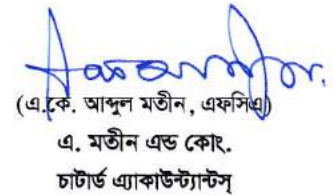 (এ.কে. আব্দুল মতীন, এফসিএ)
এ. মতীন এন্ড কোং.
চাটার্ড এ্যাকাউন্ট্যান্টস্